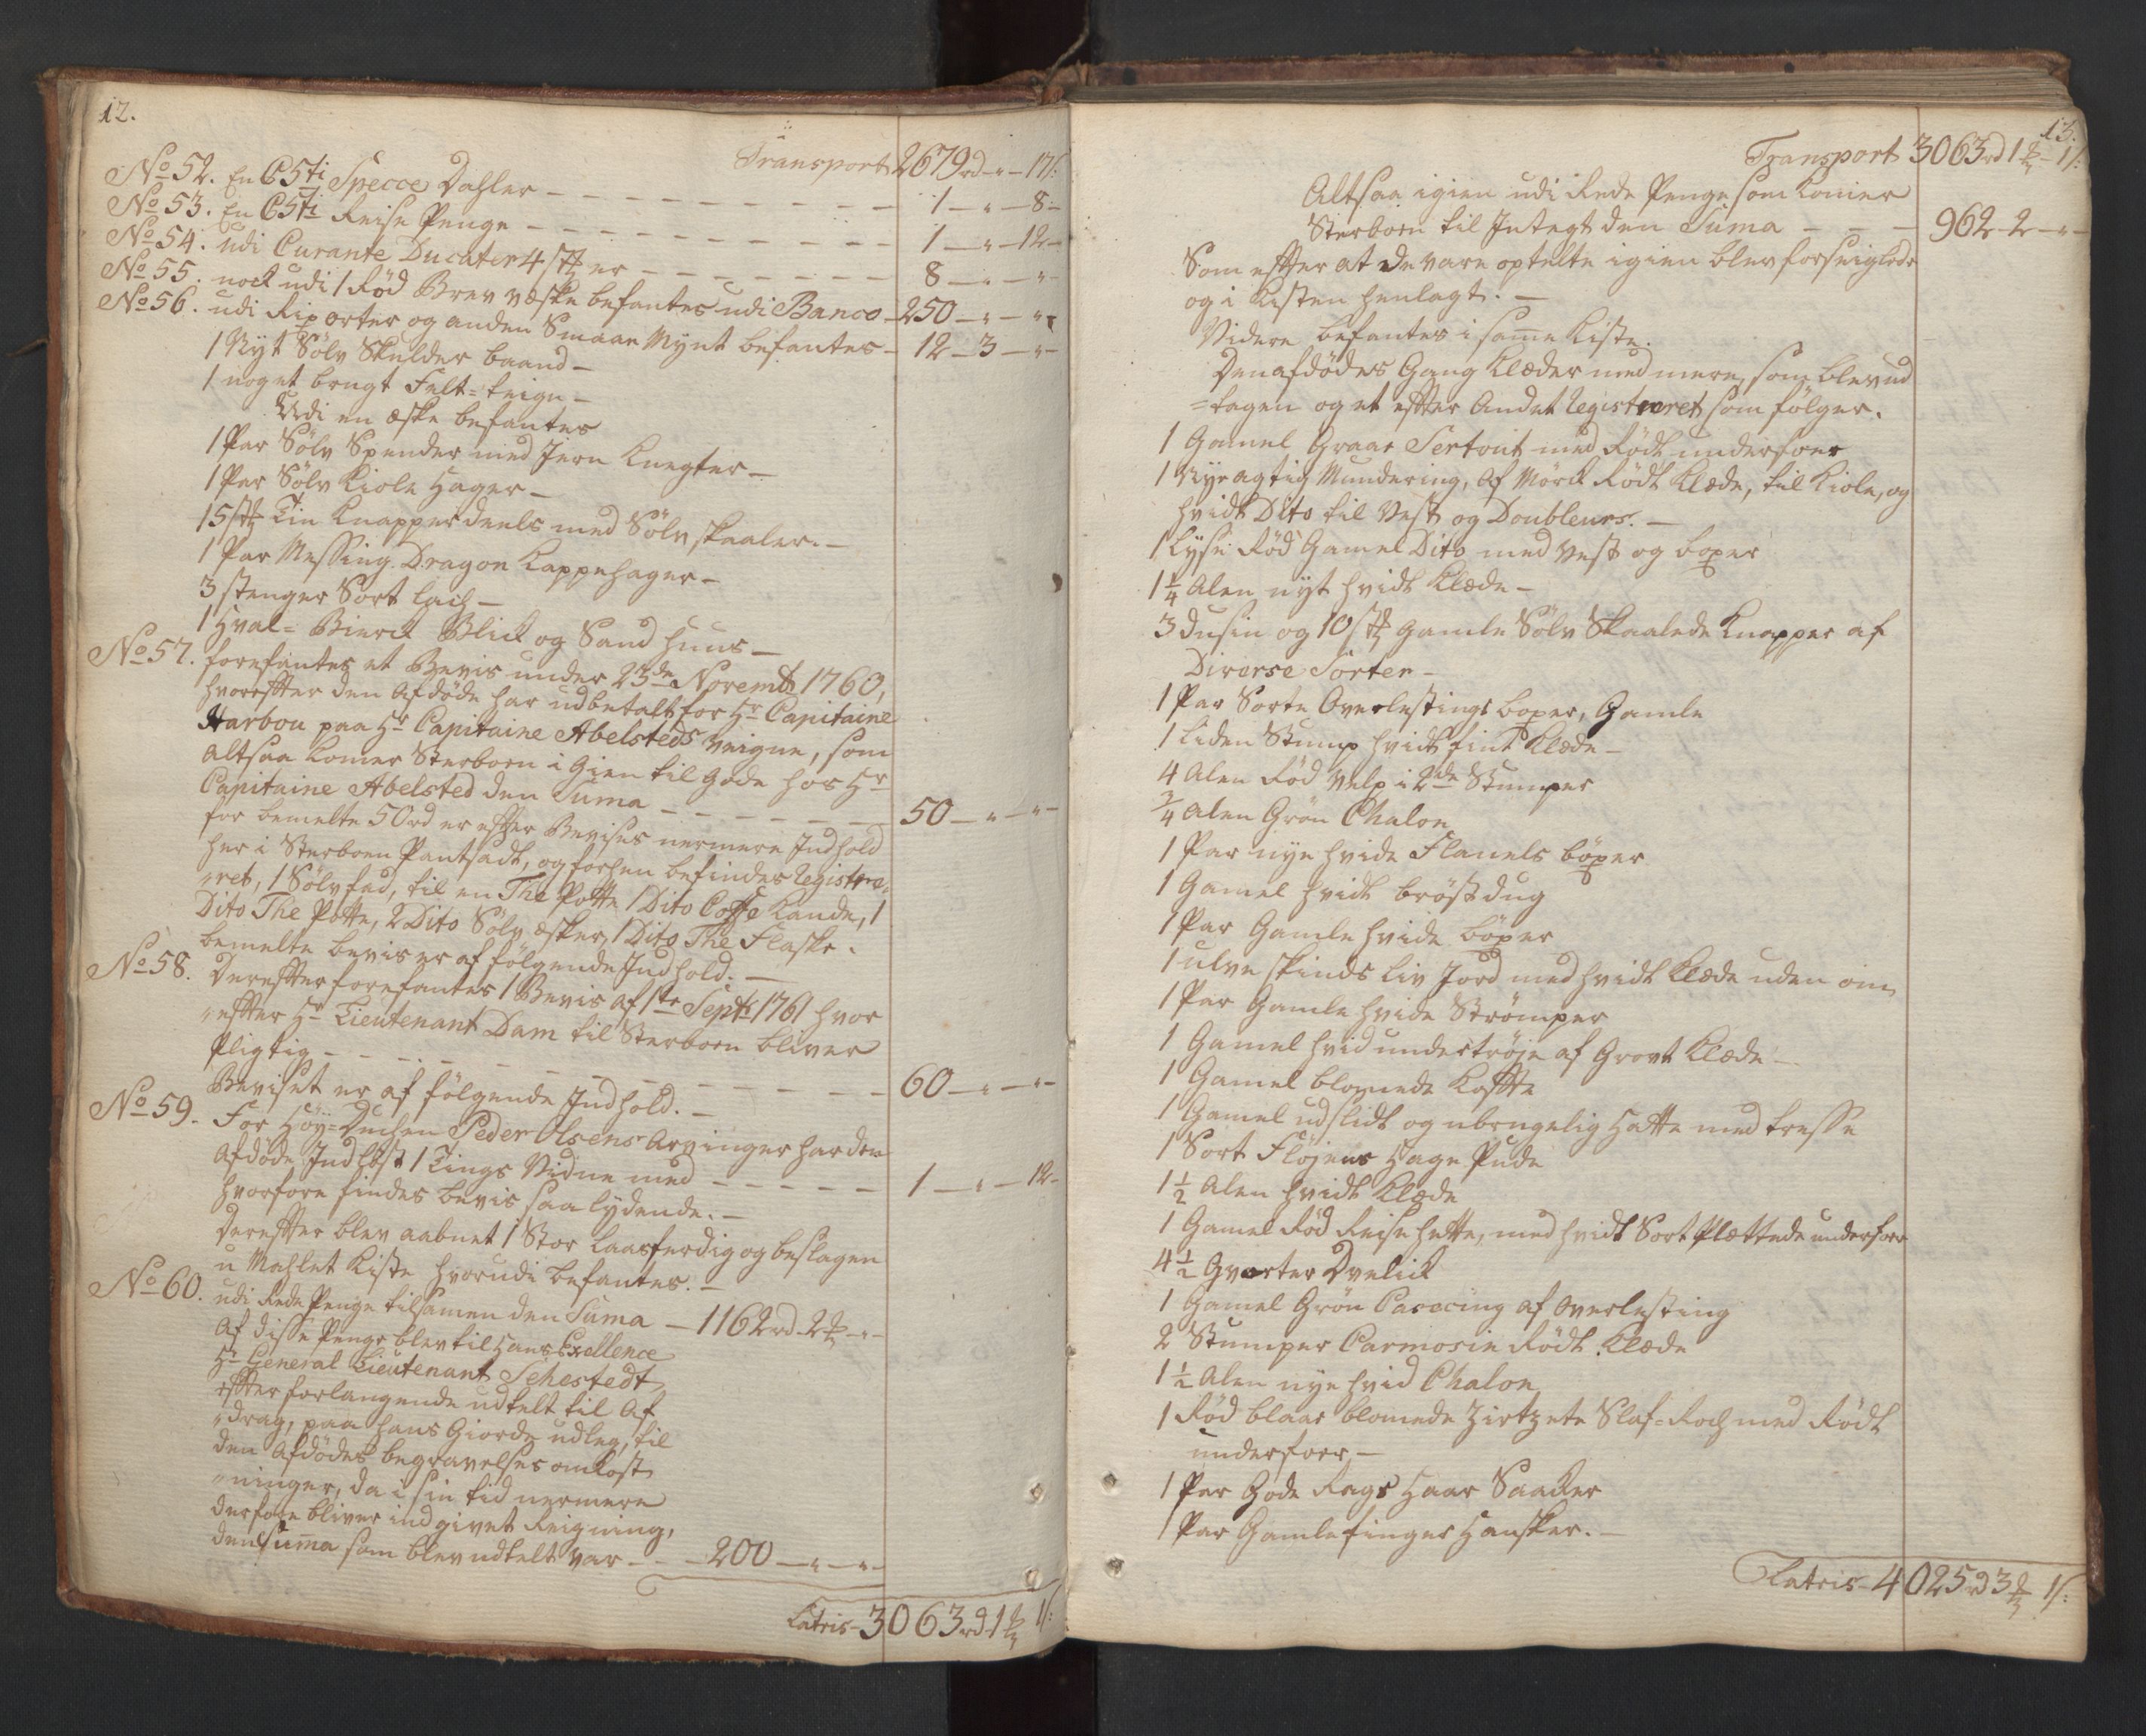 12.
Transport 2679rd - " - 17ß:
No 52. En C5ti Specce Dahler - 1 - " - 8 -
No 53. En C5ti Reise Penge - 1 - " - 12 -
No 54. udi Curante Ducater 4 st er - 8 - " - " -
No 55. nock udi 1 Rød Brev væske befantes udi Banco - 250 - " - " -
No 56. udi Rix orter og anden Smaae Mynt befantes - 12 - 3 - " -
1 Nyt Sölv Skulder baand -
1 noget brugt Felt=teign -
Udi en æske befantes
1 Par Sölv Spender med Jern Knegter -
1 Par Sölv Kiole Hager -
15 st Tin Knapper deels med Sölv skaaler. -
1 Par Messing Dragon Kappehager -
3 stenger Sort Lach -
1 Hval= Bierck Blick og Sand Huus -
No 57. forefantes et Bevis under 23de Novembr 1760,
hvorefter den Afdöde har udbetalt for Hr Capitaine
Harbou paa Hr Capitaine Abelsteds veigne, som
altsaa komer Sterboen i gien til gode hos Hr
Capitaine Abelsted den Suma - 50 - " - " -
for bemelte 50rd er efter Bevises nermere Indhold
her i Sterboen Pantsadt, og forhen befindes Registre=
"ret, 1 Sölv fad, til en The Potte 1 Dito Coffe Kande, 1
Dito The Potte, 2 Dito Sölv æsker, 1 Dito The Flaske.
bemelte bevis er af fölgende Indhold. -
No 58. Derefter forefantes 1 Bevis af 1te Septr 1761 hvor
"efter Hr Lieutenant Dam til Sterboen bliver
Pligtig - 60 - " - " -
Beviset er af fölgende Indhold. -
No 59. For Höy= Peder Olsens Arvinger har den
Afdöde Indlöst 1 Tings Vidne med - 1 - " - 12 -
hvorfore findes bevis saa lydende. -
Derefter blev aabnet 1 Stor laasferdig og beslagen
u Mahlet Kiste hvorudi befantes. -
No 60. udi Rede Penge tilsamen den Suma - 1162rd - 2 - " -
Af disse Penge blev til Hans Excellence
Hr General Lieutenant Sehestedt
efter forlangende udtelt til Af
"drag, paa hans Giorde udleg, til
den Afdödes begravelses omkost
"ninger, da i sin tid nermere
derfore bliver ind givet Reigning,
den Suma som blev udtelt var - 200 - " - " -
Latris - 3063rd - 1 1ß:
13.
Transport 3063rd 1 - 1ß:
Altsaa igien udi Rede Penge som komer
Sterboen til Jntegt den Suma - 962 - 2 - " -
Som efter at de vare optelte igien blev forseiglede
og i Kisten henlagt. -
Videre befantes i same Kiste.
Den afdödes Gang Klæder med mere, som blev ud
=tagen og et efter Andet Registreret som fölger.
1 Gamel Graae Sertout med Rödt underfoer
1 Nye agtig Mundering, Af Mörck Rödt Klæde, til Kiole, og
hvidt Dito til Vest og Doubleurs. -
1 Lyse Röd Gamel Dito med Vest og boxer
1 1/4 Alen nyt hvidt Klæde -
3 Dusin og 10 st gamle Sölv Skaalede Knapper af
Diverse Sorter -
1 Par Sorte Overlestings boxer, Gamle
1 Liden Stump hvidt fint Klæde -
4 Alen Röd Velp i 2de Stumper
3/4 Alen Grön Chalon
1 Par nye hvide Flanels böxer
1 Gamel hvidt bröst dug
1 Par Gamle hvide böxer
1 ulve skinds liv Jord med hvidt Klæde uden om
1 Par Gamle hvide Strömper
1 Gamel hvid undertröje af Grovt Klæde -
1 Gamel blomede Kofte
1 Gamel udslidt og ubrugelig Hatte med tresse
1 Sort Flöjens Hage Pude
1 1/2 Alen hvidt Klæde
1 Gamel Röd Reise hette, med hvidt Sort Plættede underfoer
4 1/2 Qvarter Dvelick
1 Gamel Grön af Overlesting
2 Stumper Carmosin Rödt Klæde
1 1/2 Alen nye hvid Chalon
1 Röd blaae blomede Zirtzets Slaf=Roch med Rödt
underfoer -
1 Par Gode Rags Haar Saaker
1 Par Gamle finger Hansker. -
Latris - 4025rd 3 1ß: